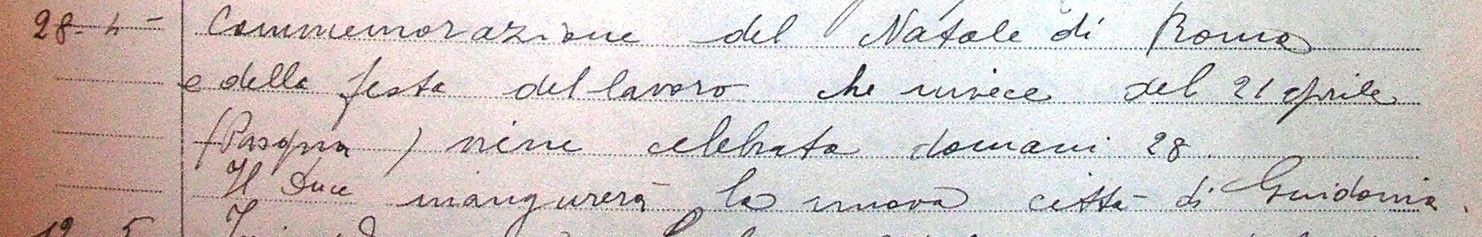 28-4- Commemorazione del Natale di Roma
e della festa del lavoro che invece del 21 aprile
(Pasqua) viene celebrata domani 28.
Il Duce inaugurerà la nuova città di Guidonia.
12 5